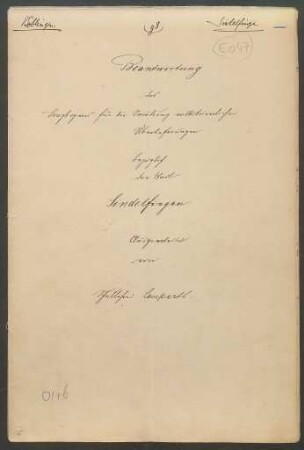 Böblingen.
98
Sindelfingen
(E047)
Beantwortung
des
Fragbogens für die Sammlung volkstümlicher
Überlieferungen
bezüglich
der Stadt
Sindelfingen
Ausgearbeitet
von
Schullehrer